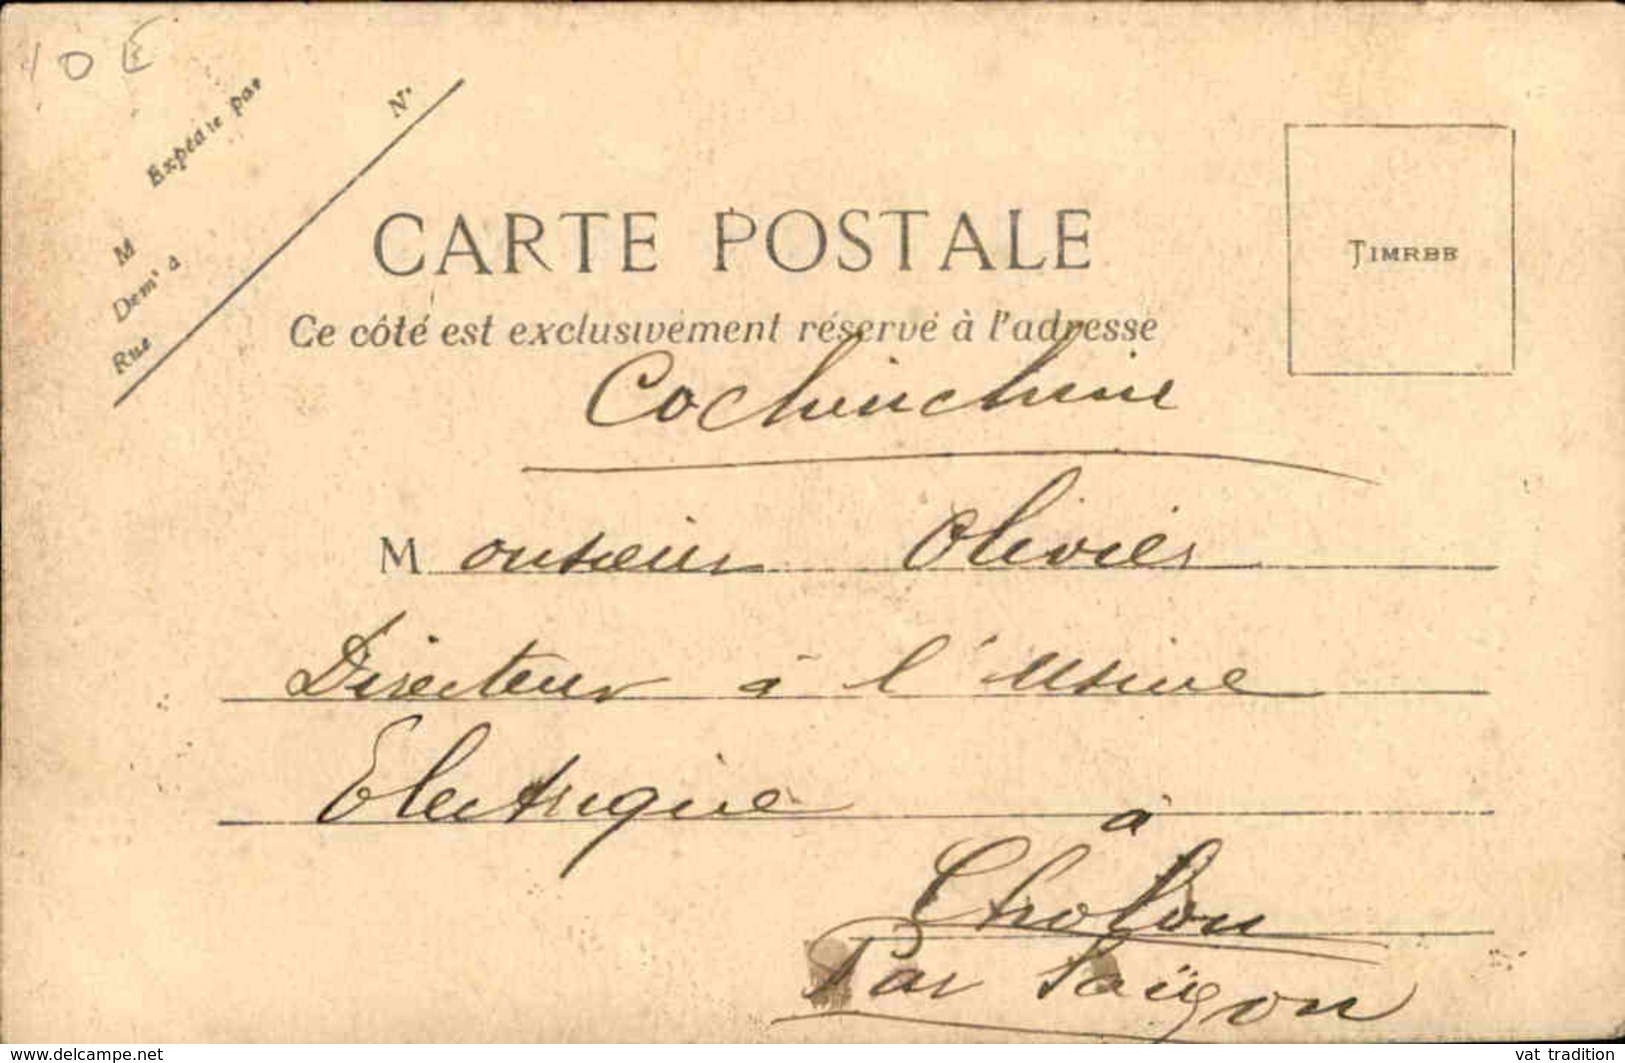 10 E
Expédié par
N°
M
Demt à
Rue
CARTE POSTALE
TIMBRE
Ce côté est exclusivement réservé à l'adresse
Cochinchine
Monsieur Olivier
Directeur à l'Usine
Electrique à
Cholon
Par Saïgon
www.delcampe.net
vat_tradition